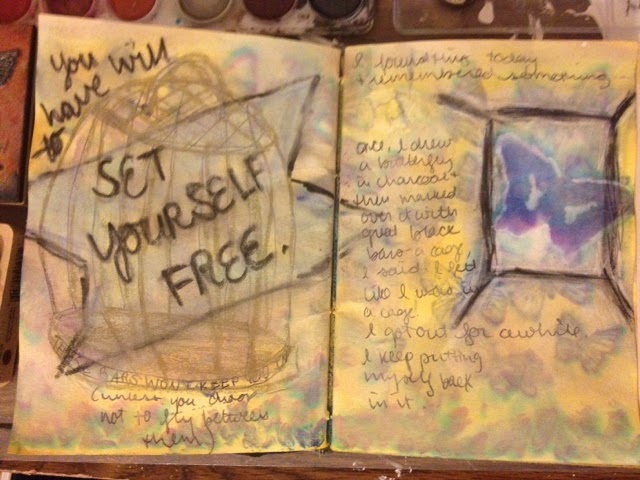 you will
have
to
SET
YOURSELF
FREE.
BARS WON'T KEEP YOU
(unless you choose
not to fly between
them)
I found this today
+ remembered something
once, I drew
a butterfly
in charcoal +
then marked
over it with
great black
bars - a cage,
I said I felt
like I was in
a cage.
I got out for awhile.
I keep putting
myself back
in it.